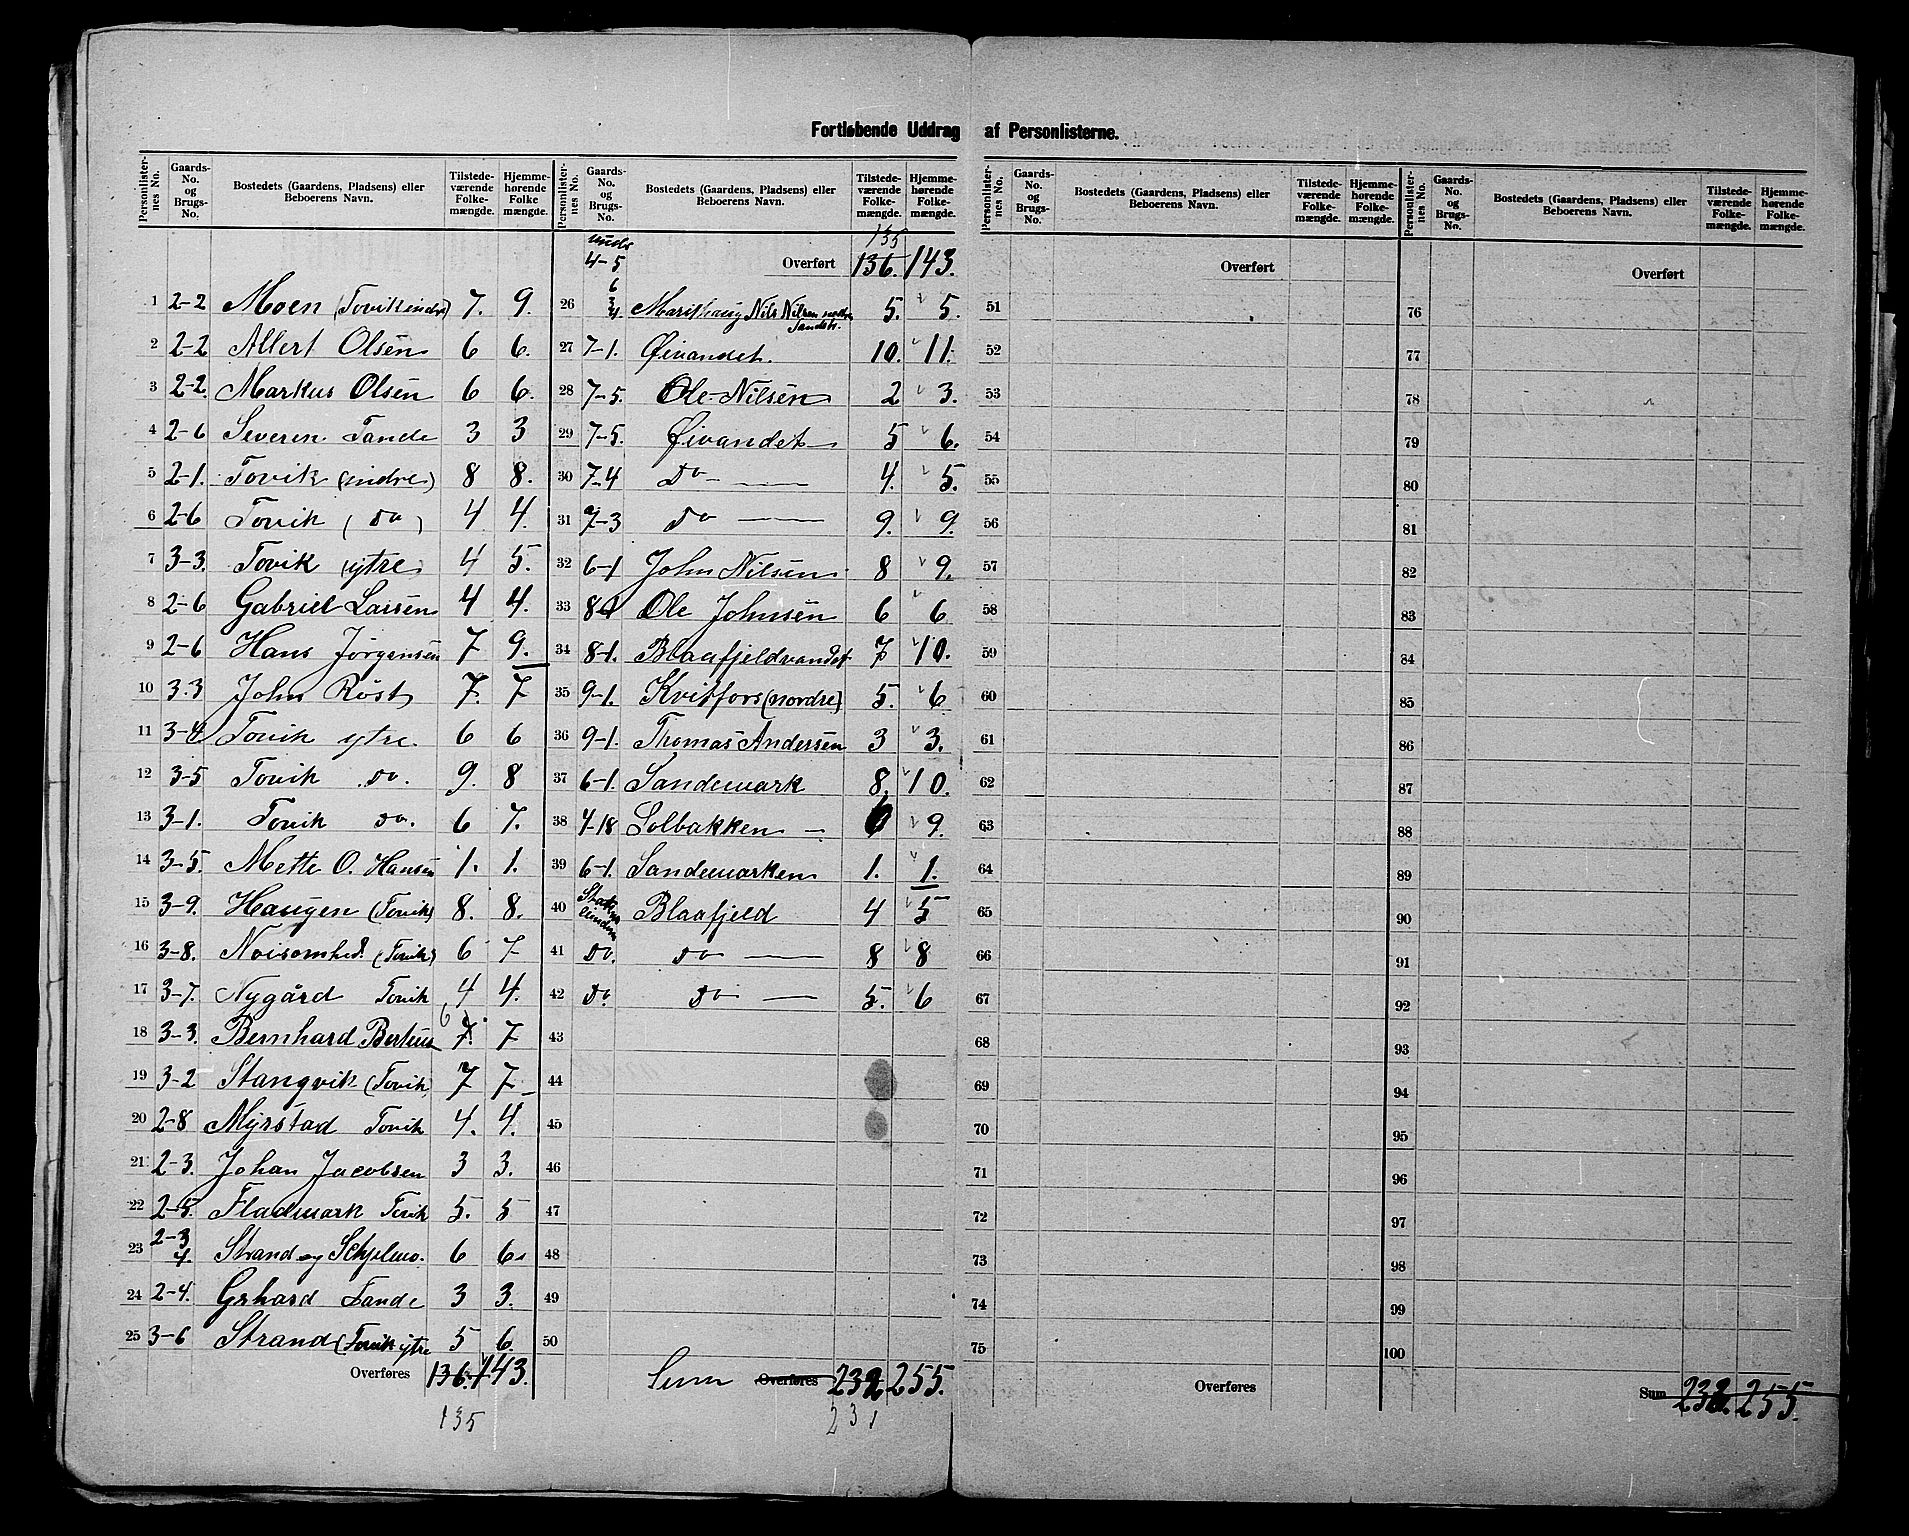 Fortløbende Uddrag af Personlisterne.
Personlister-nes No. Gaards-No. og Brugs-No. Bostedets (Gaardens, Pladsens) eller Beboerens Navn. Tilstede-værende Folke-mængde. Hjemme-hørende Folke mængde.
1 2-2 Moen (Tovik indre) 7. 9.
2 2-2 Allert Olsen 6 6.
3 2-2. Markus Olsen 6 6.
4 2-6 Severen Tande 3 3
5 2-1. Tovik (indre) 8 8.
6 2-6 Tovik (Do) 4 4.
7 3-3. Tovik (ytre) 4 5.
8 2-6 Gabriel Larsen 4 4.
9 2-6 Hans Jørgensen 7 9.
10 3-3 John Röst 7. 7
11 3-4 Tovik ytre. 6 6
12 3-5 Tovik do. 9. 8
13 3-1. Tovik do. 6 7.
14 3-5. Mette O. Hansen 1. 1.
15 3-9. Haugen (Tovik) 8. 8.
16 3-8. Noisomhed (Tovik) 6 7
17 3-7. Nygård Tovik 4 4.
18 3-3. Bernhard Berteus 6 7. 7
19 3-2 Stangvik (Tovik) 7 7
20 2-8 Myrstad Tovik 4. 4.
21 2-3. Johan Jacobsen 3 3.
22 2-5. Fladmark Tovik 5. 5
23 2-3 4. Strand og Schjelmo. 6 6
24 2-4. Grhard Tande 3 3.
25 3-6 Strand (Tovik ytre 5 6.
Overføres 136. 143.
135
Personlister-nes No. Gaards-No. og Brugs-No. Bostedets (Gaardens, Pladsens) eller Beboerens Navn. Tilstede-værende Folke-mængde. Hjemme-hørende Folke-mængde.
135
4-5 Overført 136. 143.
26 6 3/4 Marithaug Nils Nilsen 5. 5.
27 7-1. Øivandet. 10. 11.
28 7-5. Ole Nilsen 2 3.
29 7-5. Øivandet 5 6.
30 7-4 Do 4. 5.
31 7-3 Do 9. 9.
32 6-1 John Nilsen 8 9.
33 8-1 Ole Johnsen 6 6
34 8-1. Blaafjeldvandet 7 10.
35 9-1. Kvitfors (nordre) 5. 6
36 9-1. Thomas Andersen 3 3.
37 6-1. Sandemark 8. 10.
38 4-18 Solbakken 6 9.
39 6-1. Sandemarken 1. 1.
40 Blaafjeld 4 5
41 Do. Do 8 8
42 Do. Do 5. 6
43
44
45
46
47
48
49
50
Sum Overføres 232 255.
231
Personlister-nes No. Gaards-No. og Brugs-No. Bostedets (Gaardens, Pladsens) eller Beboerens Navn. Tilstede-værende Folke-mængde. Hjemme-hørende Folke-mængde.
Overført
51
52
53
54
55
56
57
58
59
60
61
62
63
64
65
66
67
68
69
70
71
72
73
74
75
Overføres
Personlister-nes No. Gaards-No. og Brugs-No. Bostedets (Gaardens, Pladsens) eller Beboerens Navn. Tilstede-værende Folke-mængde. Hjemme-hørende Folke-mængde.
Overført
76
77
78
79
80
81
82
83
84
85
86
87
88
89
90
91
92
93
94
95
96
97
98
99
100
Sum 232. 255.